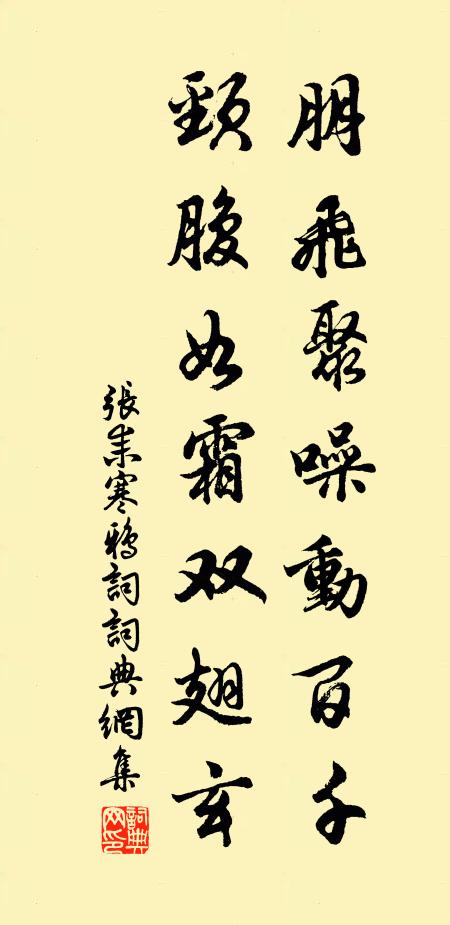 朋飛聚噪動百千
頸腹如霜双翅玄
張耒寒鴉詞詞典網集
詞典網印